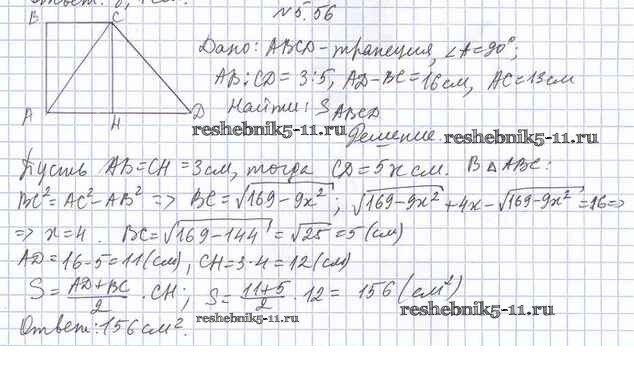 №5.56
B C
Дано: ABCD-трапеция, ∠A=90°;
AB:CD=3:5, AD-BC=16см, AC=13см
A H D
Найти: S ABCD
reshebnik5-11.ru
Решение.
reshebnik5-11.ru
Пусть AB=CH=3см, тогда CD=5x см. В △ABC:
BC²=AC²-AB² => BC=√169-9x²; √169-9x²+4x-√169-9x²=16=>
=> x=4. BC=√169-144=√25=5(см)
AD=16-5=11(см), CH=3·4=12(см)
S=AD+BC/2 · CH; S=11+5/2 · 12= 156(см²)
reshebnik5-11.ru
reshebnik5-11.ru
Ответ: 156см².